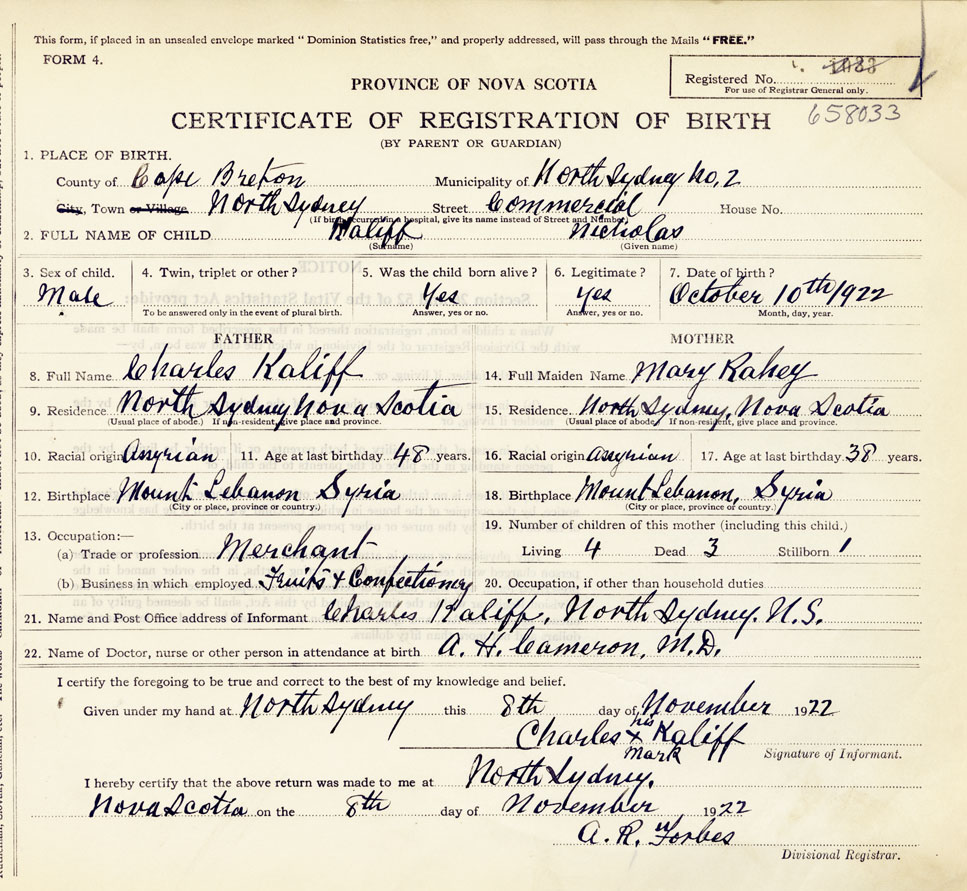 This form, if placed in an unsealed envelope marked " Dominion Statistics free," and properly addressed, will pass through the Mails "FREE."
FORM 4.
Registered No. 1083
For use of Registrar General only.
PROVINCE OF NOVA SCOTIA
658033
CERTIFICATE OF REGISTRATION OF BIRTH
(BY PARENT OR GUARDIAN)
1. PLACE OF BIRTH.
County of Cape Breton Municipality of North Sydney No, 2
City, Town or Village North Sydney Street Commercial House No.
(If birth occurred in a hospital, give its name instead of Street and Number)
2. FULL NAME OF CHILD Kaliff Nicholas
(Surname) (Given name)
3. Sex of child. 4. Twin, triplet or other? 5. Was the child born alive? 6. Legitimate? 7. Date of birth?
Male Yes Yes October 10th/1922
To be answered only in the event of plural birth. Answer, yes or no. Answer, yes or no. Month, day, year.
FATHER MOTHER
8. Full Name Charles Kaliff 14. Full Maiden Name Mary Rahey
9. Residence North Sydney Nova Scotia 15. Residence North Sydney, Nova Scotia
(Usual place of abode.) If non-resident, give place and province. (Usual place of abode) If non-resident, give place and province.
10. Racial origin Assyrian 11. Age at last birthday 48 years. 16. Racial origin Assyrian 17. Age at last birthday 38 years.
12. Birthplace Mount Lebanon Syria 18. Birthplace Mount Lebanon, Syria
(City or place, province or country.) (City or place, province or country.)
13. Occupation:— 19. Number of children of this mother (including this child.)
(a) Trade or profession Merchant Living 4 Dead 3 Stillborn 1
(b) Business in which employed Fruits & Confectionery 20. Occupation, if other than household duties
21. Name and Post Office address of Informant Charles Kaliff, North Sydney. N.S.
22. Name of Doctor, nurse or other person in attendance at birth A. H. Cameron, M.D.
I certify the foregoing to be true and correct to the best of my knowledge and belief.
Given under my hand at North Sydney this 8th day of November 1922
his
Charles x Kaliff
mark
Signature of Informant.
I hereby certify that the above return was made to me at North Sydney.
Nova Scotia on the 8th day of November 1922
A. R. Forbes
Divisional Registrar.